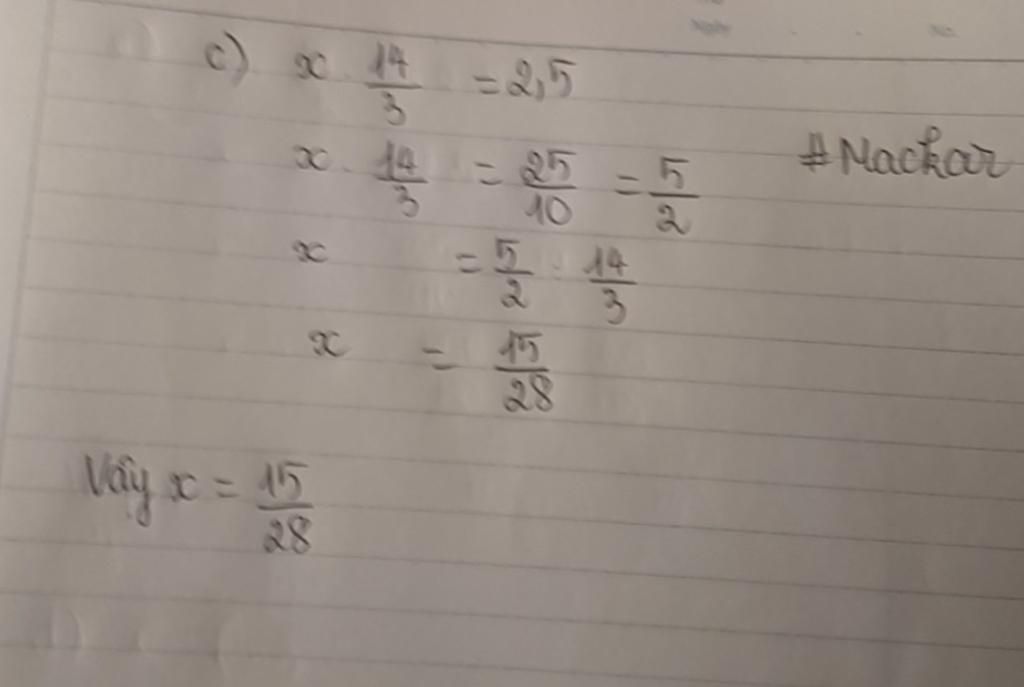 c) x . 14/3 = 2,5
x . 14/3 = 25/10 = 5/2
#Mackar
x = 5/2 : 14/3
x = 15/28
Vậy x = 15/28